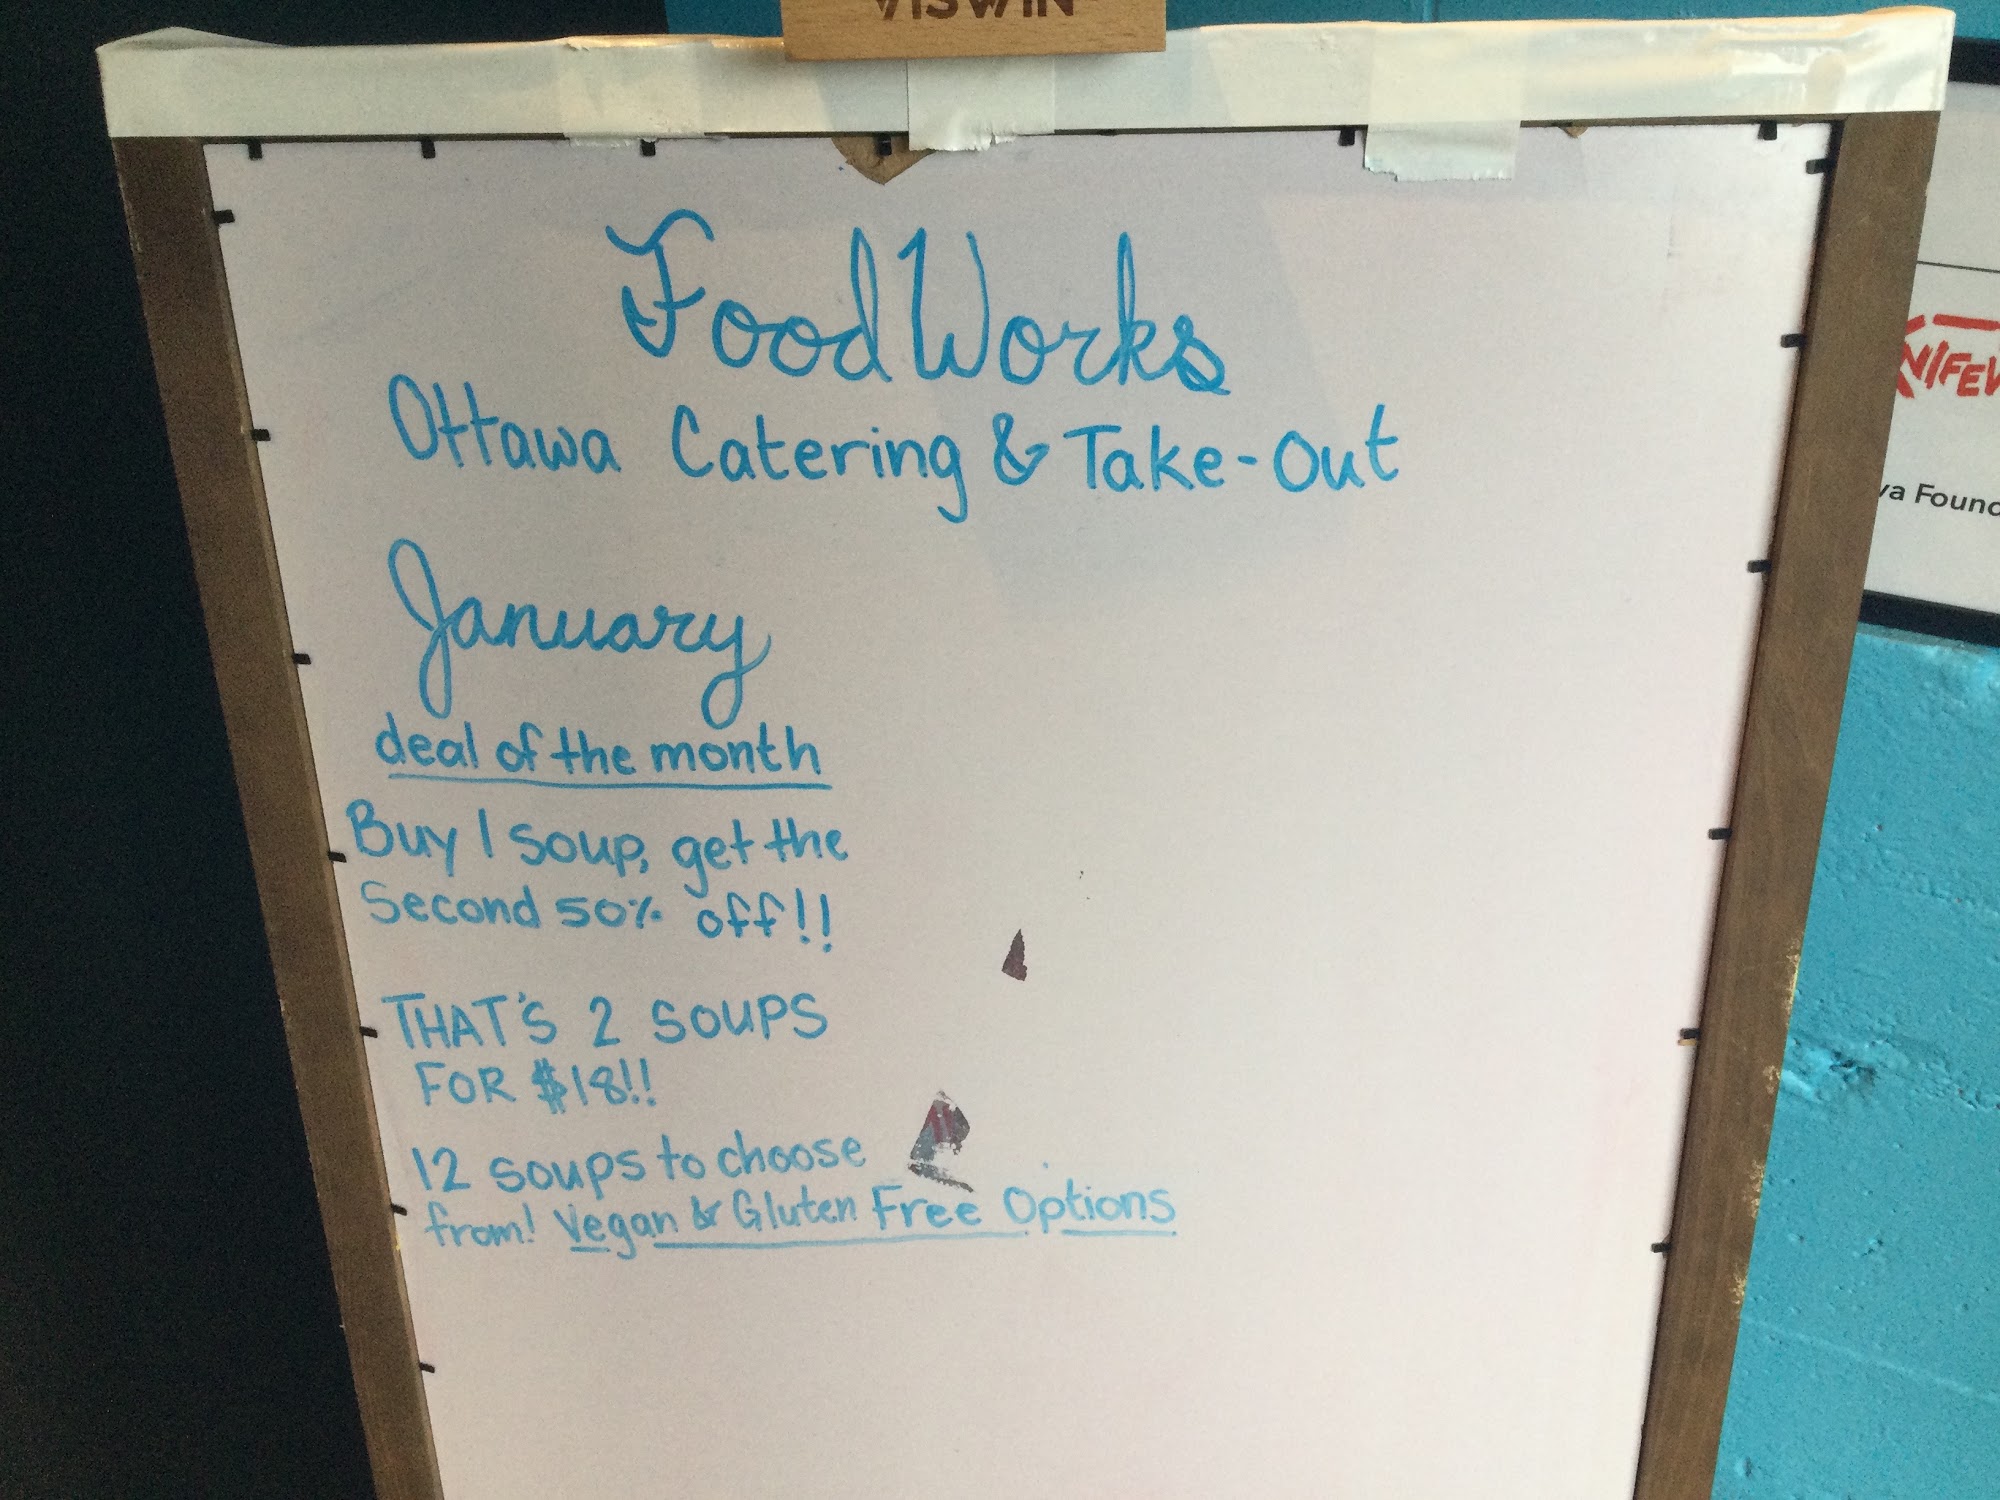 VISWIN
FoodWorks
Ottawa Catering & Take-Out
January
deal of the month
Buy 1 soup, get the
Second 50% off!!
THAT'S 2 SOUPS
FOR $18!!
12 soups to choose
from! Vegan & Gluten Free Options